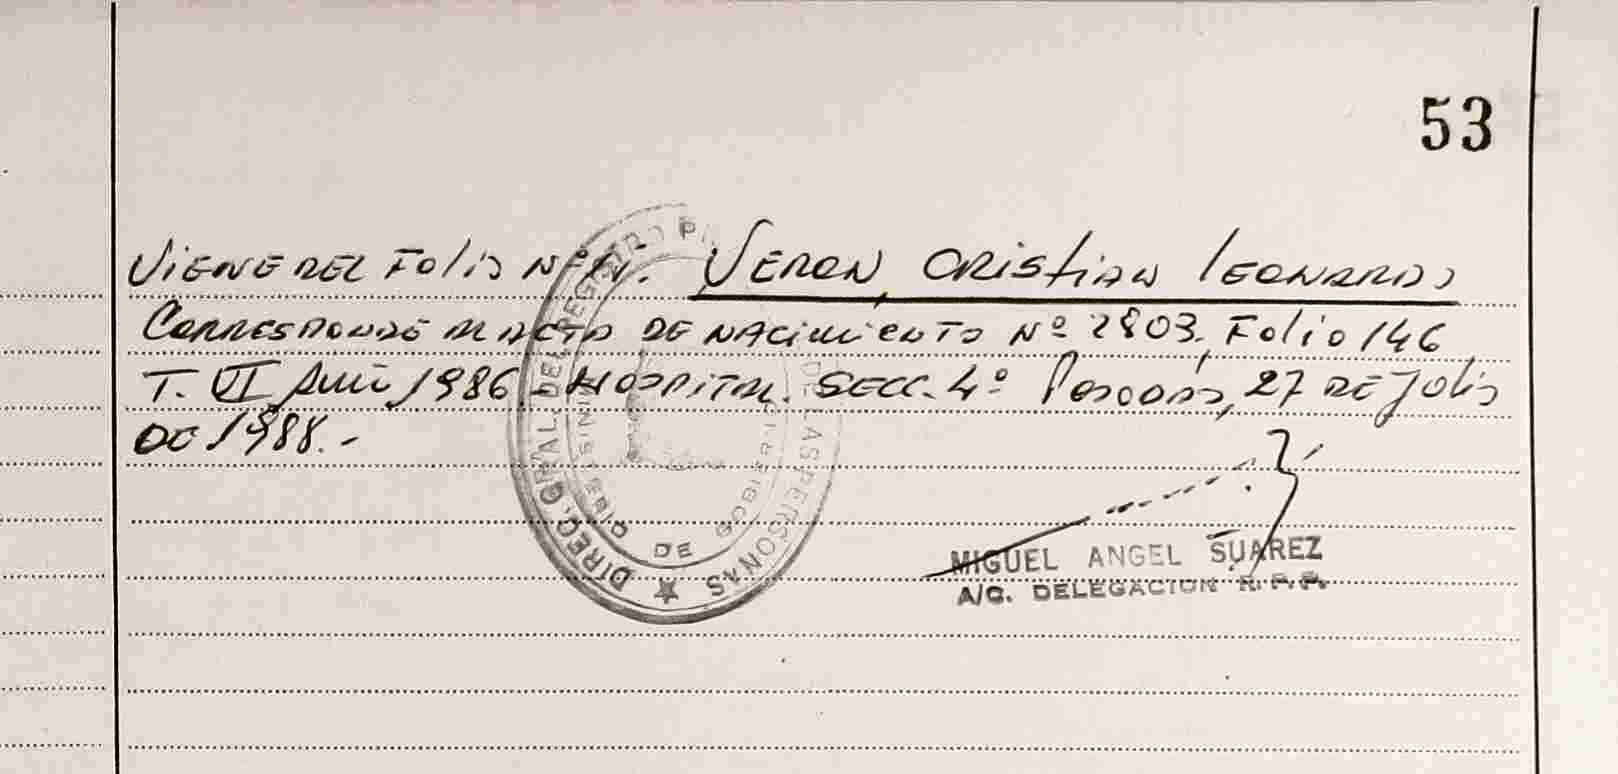 53
Viene del Folio Nº
VERON, CRISTIAN LEONARDO
Corresponde al Acta de Nacimiento Nº 2803, Folio 146
T. VI Año 1986. Hospital. SECC. 4º Posadas, 27 de Julio
de 1988.-
DIREC. GRAL. DEL REGISTRO P DE LAS PERSONAS
DE GOBIERNO
MIGUEL ANGEL SUAREZ
A/C. DELEGACION R.P.P.